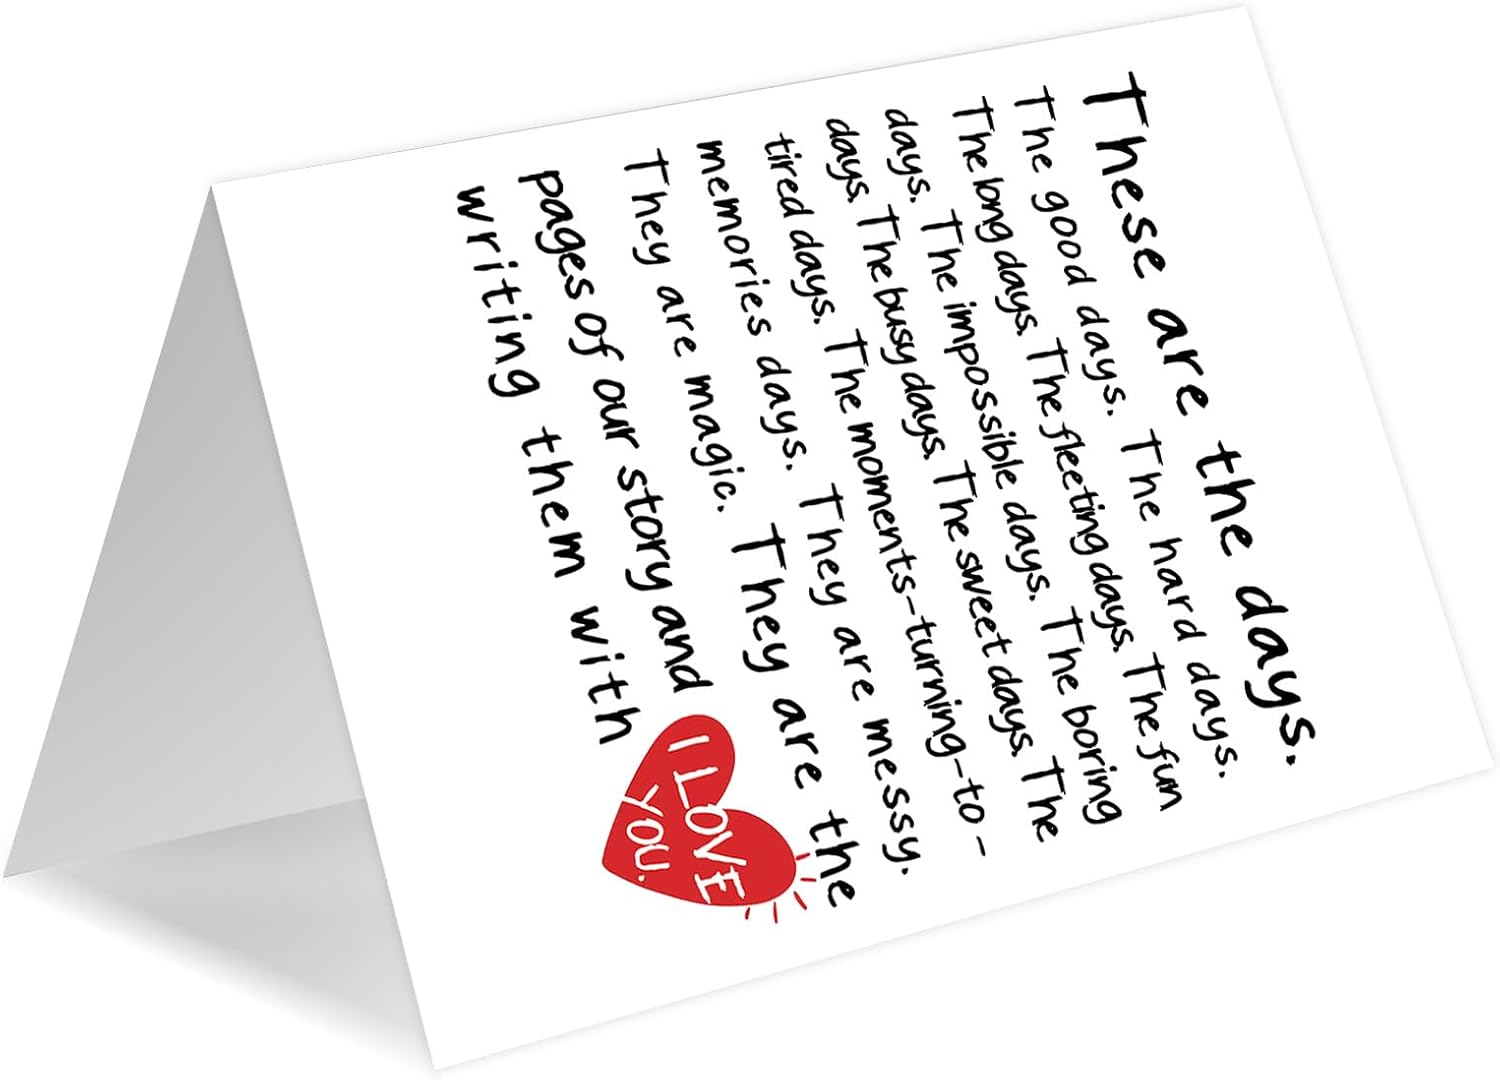 These are the days.
The good days. The hard days.
The long days. The fleeting days. The fun
days. The impossible days. The boring
days. The busy days. The sweet days. The
tired days. The moments-turning-to-
memories days. They are messy.
They are magic. They are the
pages of our story and
writing them with
I LOVE
YOU.